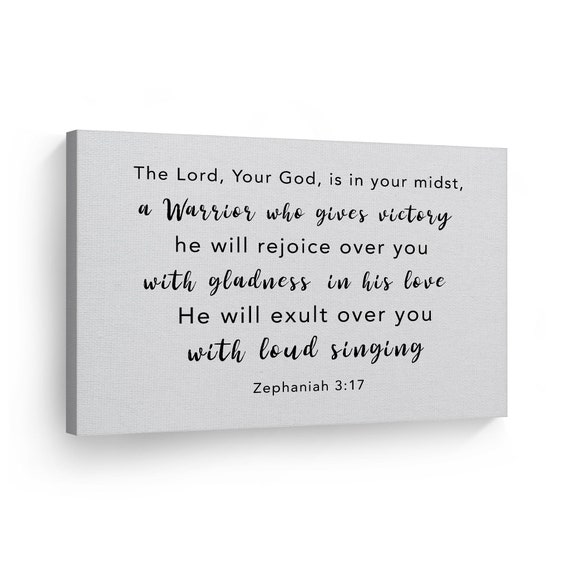 The Lord, Your God, is in your midst,
a Warrior who gives victory
he will rejoice over you
with gladness in his love
He will exult over you
with loud singing
Zephaniah 3:17